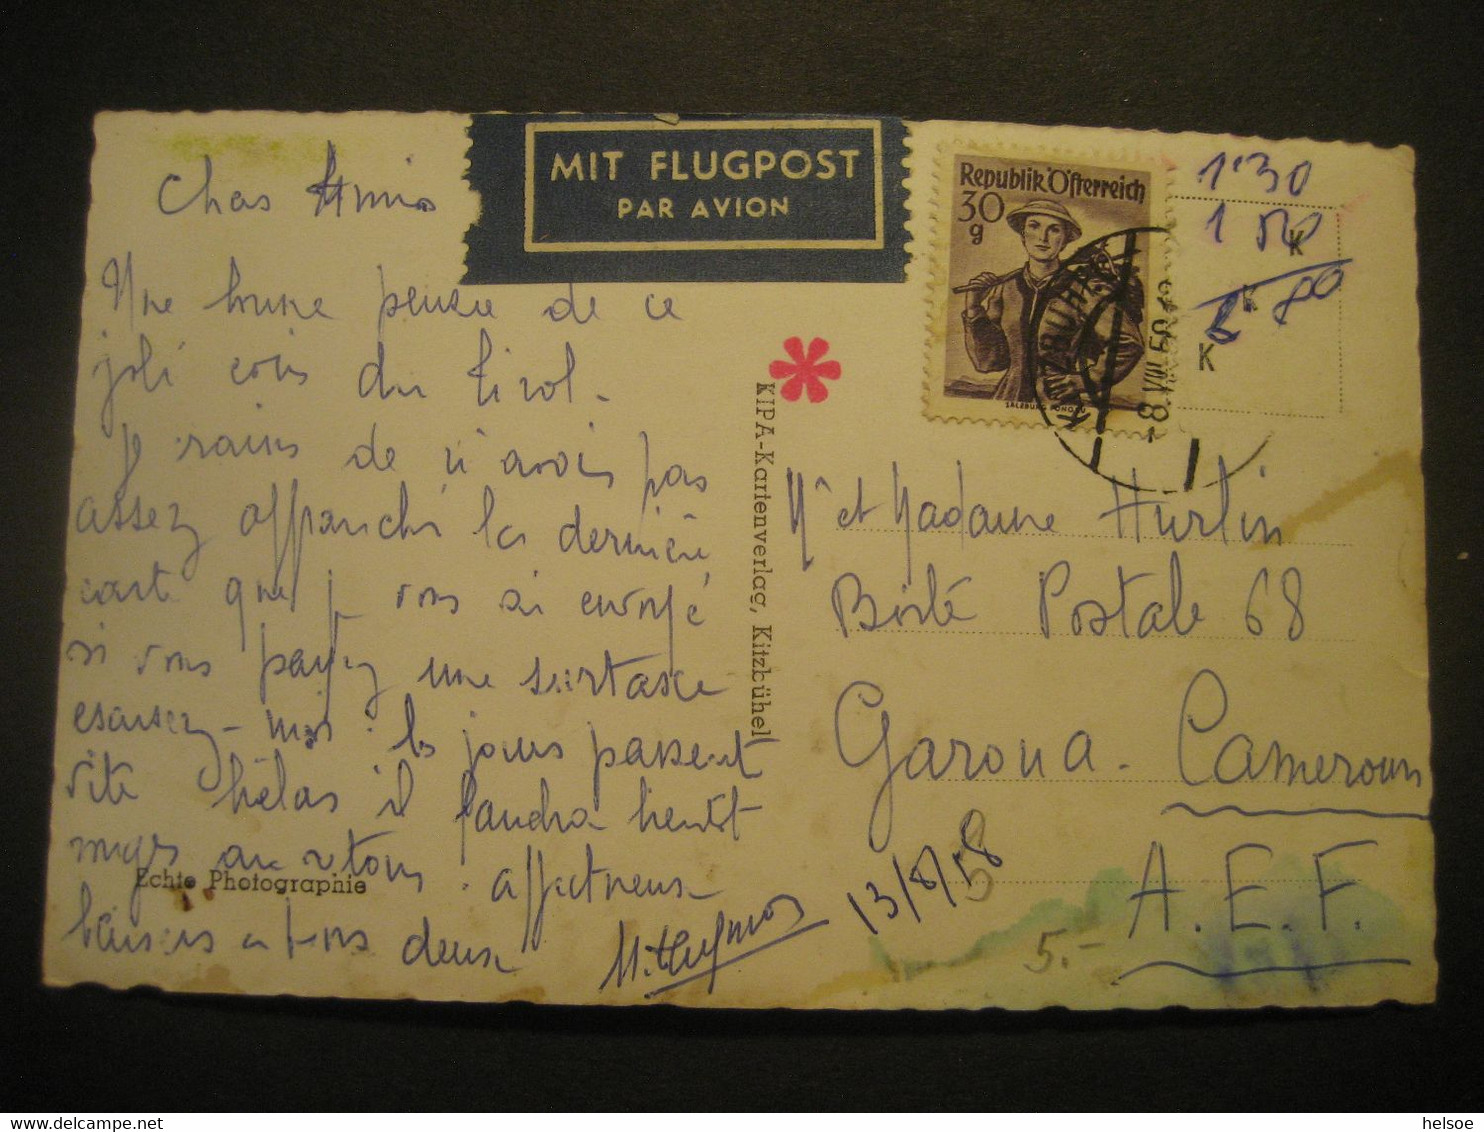 Chers Amis
Une bonne pensée de ce
joli coin du Tirol.
Je crains de n'avoir pas
assez affranchi la dernière
carte que je vous ai envoyé
si vous payez une surtaxe
excusez-moi. les jours passent
vite hélas il faudra bientôt
au retour. affectueux
baisers à tous deux
MIT FLUGPOST
PAR AVION
Republik Österreich
30
g
KITZBÜHEL
-8.VIII.58
1'30
1 50
K
2 80
K
K
KIPA-Kartenverlag, Kitzbühel
Mr et Madame Hurlin
Boite Postale 68
Garoua - Cameroun
A.E.F.
13/8/58
5.-
Echte Photographie
helsoe
delcampe.net